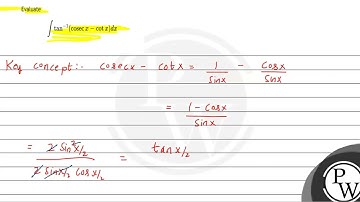 Evaluate
∫ tan⁻¹(cosec x − cot x)dx
Key concept:- cosecx − cotx = 1/sinx − cosx/sinx
= (1 − cosx)/sinx
= (2 sin²x/2)/(2 sinx/2 cosx/2) = tan x/2
PW